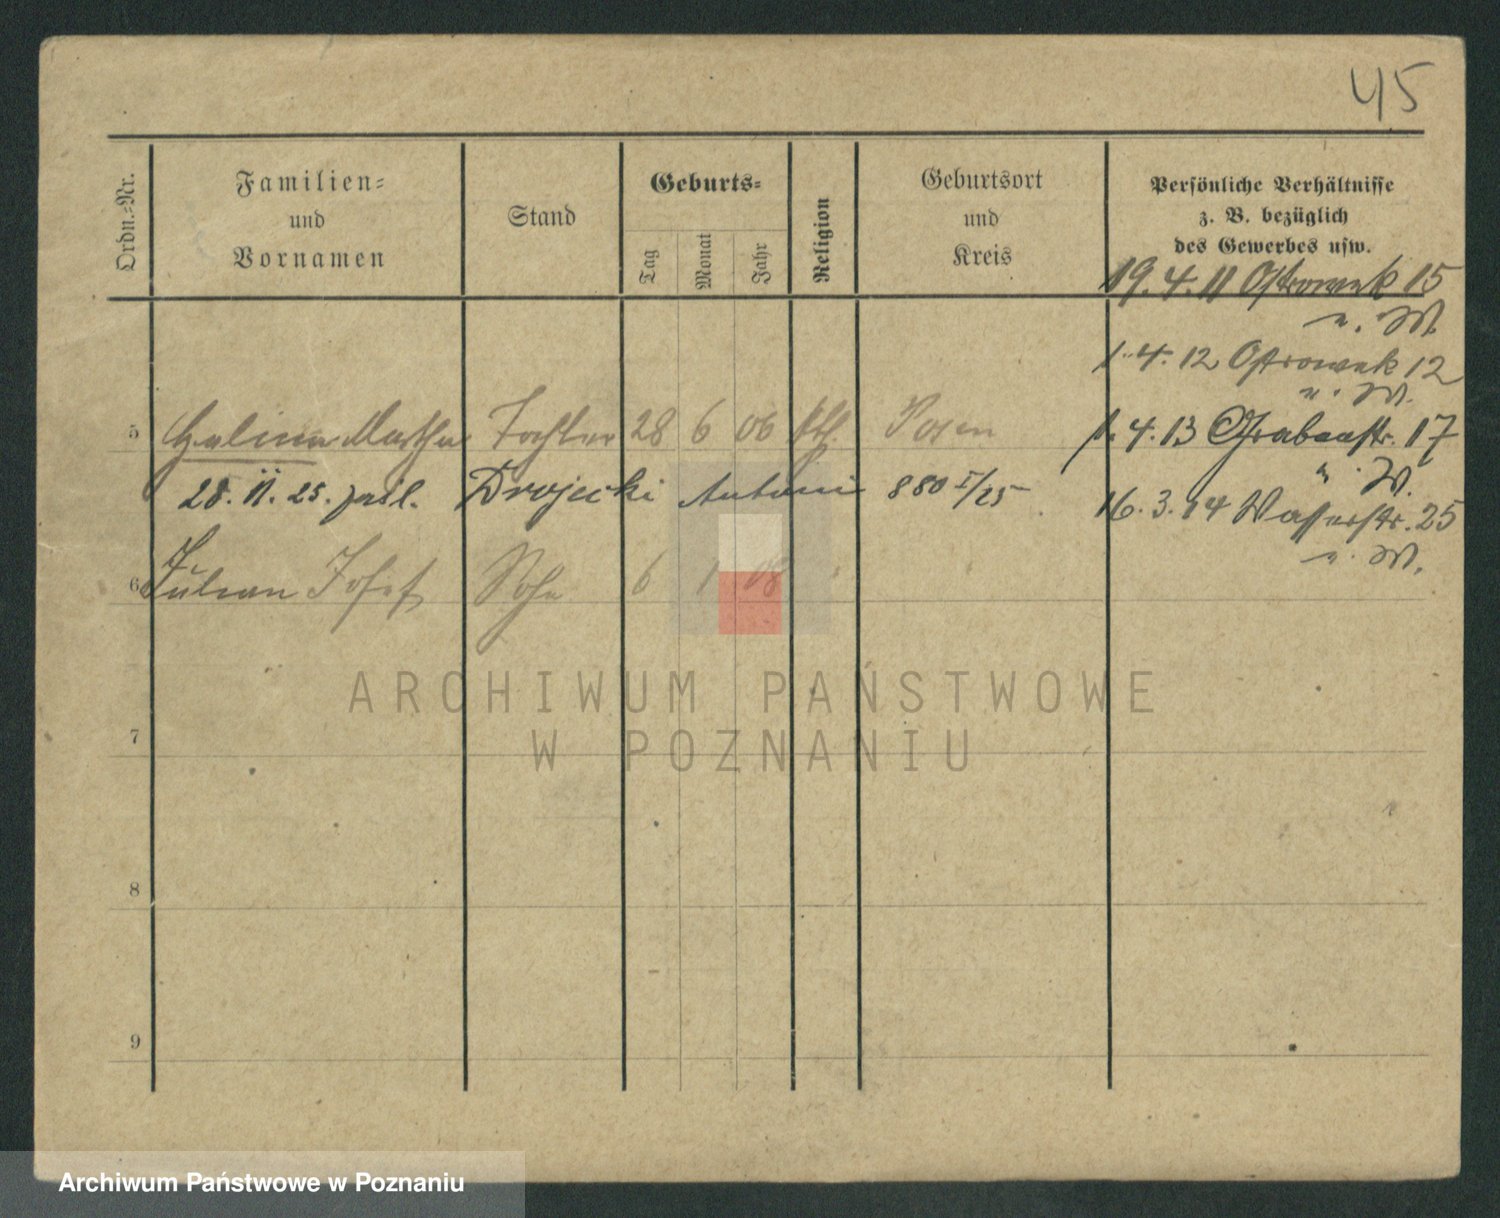 45
Ordn.=Nr.
Familien=
und
Vornamen
Stand
Geburts=
Tag
Monat
Jahr
Religion
Geburtsort
und
Kreis
Persönliche Verhältnisse
z. B. bezüglich
des Gewerbes usw.
19. 4. 11 Ostrowek 15
u. W.
1. 4. 12 Ostrowek 12
u. W.
5 Halina Martha Tochter 28 6 06 kth. Posen
1. 4. 13 Grabenstr. 17
u. W.
28. 11. 25. zasl. Drojecki Antoni 880 I/25
16. 3. 14 Wasserstr. 25
u. W.
6 Julian Josef Sohn 6 1 08 "
7
8
9
ARCHIWUM PAŃSTWOWE
W POZNANIU
Archiwum Państwowe w Poznaniu